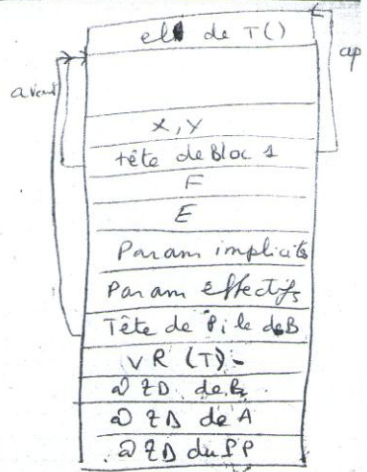 elt de T()
ap
avant
X, Y
tête de Bloc 1
F
E
Param implicits
Param Effectifs
Tête de Pile de B
VR (T) -
@ ZD de B
@ ZD de A
@ ZD du PP